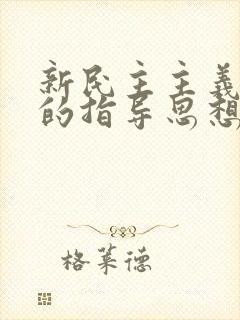 新民主主義
的指导思想
格莱德